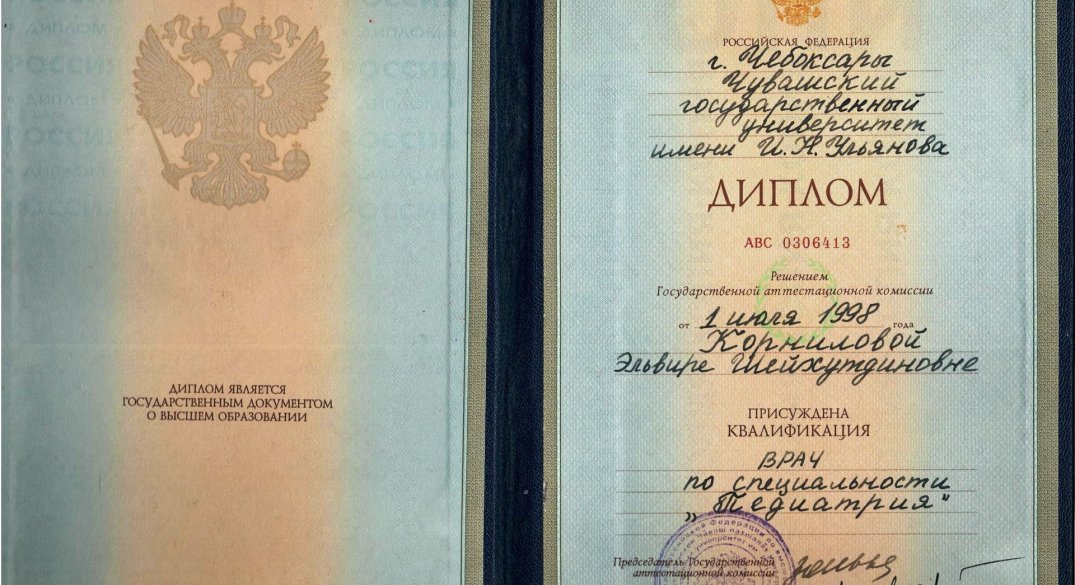 ДИПЛОМ ЯВЛЯЕТСЯ
ГОСУДАРСТВЕННЫМ ДОКУМЕНТОМ
О ВЫСШЕМ ОБРАЗОВАНИИ
РОССИЙСКАЯ ФЕДЕРАЦИЯ
г. Чебоксары
Чувашский
государственный
университет
имени И.Н.Ульянова
ДИПЛОМ
АВС 0306413
Решением
Государственной аттестационной комиссии
от 1 июля 1998 года
Корниловой
Эльвире Шейхутдиновне
ПРИСУЖДЕНА
КВАЛИФИКАЦИЯ
ВРАЧ
по специальности
„Педиатрия"
Председатель Государственной
аттестационной комиссии